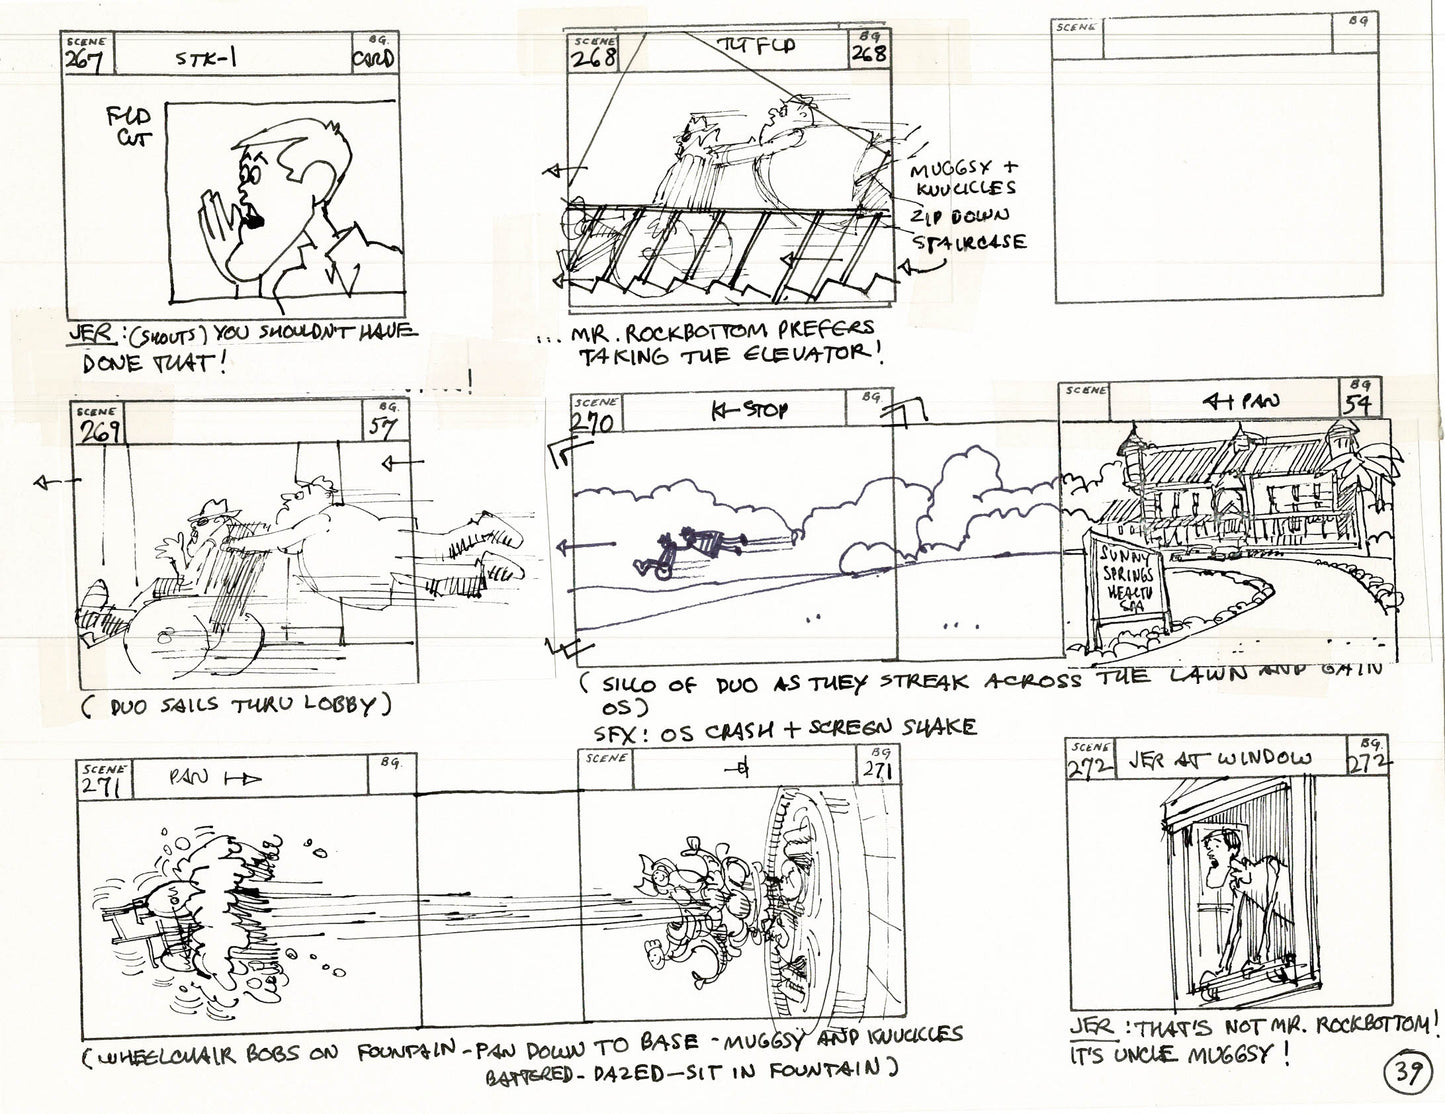 SCENE 267 STK-1 BG. CARD
FLD
CUT
JER: (SHOUTS) YOU SHOULDN'T HAVE
DONE THAT!
SCENE 268 TLT FLD BG 268
MUGGSY +
KNUCKLES
ZIP DOWN
STAIRCASE
... MR. ROCKBOTTOM PREFERS
TAKING THE ELEVATOR!
SCENE BG
SCENE 269 BG. 57
( DUO SAILS THRU LOBBY)
SCENE 270 STOP BG.
SCENE PAN BG 54
SUNNY
SPRINGS
HEALTH
SPA
( SILLO OF DUO AS THEY STREAK ACROSS THE LAWN AND GAIN
OS)
SFX: OS CRASH + SCREEN SHAKE
SCENE 271 PAN BG.
SCENE BG 271
(WHEELCHAIR BOBS ON FOUNTAIN - PAN DOWN TO BASE - MUGGSY AND KNUCKLES
BATTERED - DAZED - SIT IN FOUNTAIN)
SCENE 272 JER AT WINDOW BG. 272
JER: THAT'S NOT MR. ROCKBOTTOM!
IT'S UNCLE MUGGSY!
39